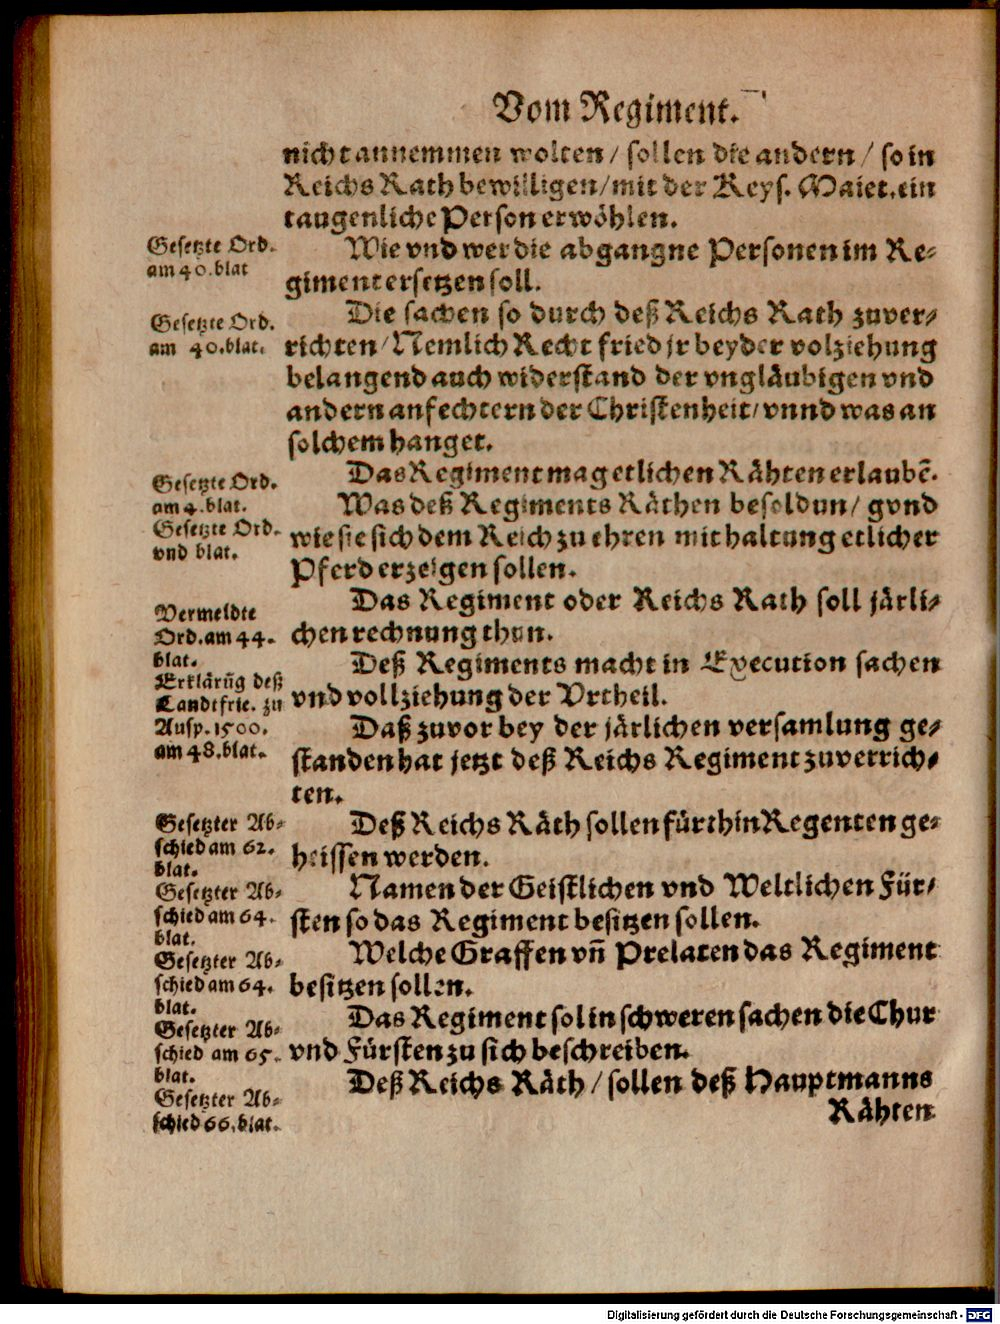 Vom Regiment.
nicht annemmen wolten / sollen die andern / so in
Reichs Rath bewilligen / mit der Keys. Maiet. ein
taugenliche Person erwöhlen.
Gesetzte Ord.
am 40. blat
Wie vnd wer die abgangne Personen im Re-
giment ersetzen soll.
Gesetzte Ord.
am 40. blat.
Die sachen so durch deß Reichs Rath zuver-
richten / Nemlich Recht fried jr beyder volziehung
belangend auch widerstand der vngläubigen vnd
andern anfechtern der Christenheit / vnnd was an
solchem hanget.
Gesetzte Ord.
am 4. blat.
Das Regiment mag etlichen Rähten erlaubē.
Gesetzte Ord.
vnd blat.
Was deß Regiments Räthen besoldun / gvnd
wie sie sich dem Reich zu ehren mit haltung etlicher
Pferd erzeigen sollen.
Vermeldte
Ord. am 44.
blat.
Das Regiment oder Reichs Rath soll järli-
chen rechnung thun.
Erklärūg deß
Landtfrie. zu
Ausp. 1500.
am 48. blat.
Deß Regiments macht in Execution sachen
vnd vollziehung der Vrtheil.
Daß zuvor bey der järlichen versamlung ge-
standen hat jetzt deß Reichs Regiment zuverrich-
ten.
Gesetzter Ab-
schied am 62.
blat.
Deß Reichs Räth sollen fürthin Regenten ge-
heissen werden.
Gesetzter Ab-
schied am 64.
blat.
Namen der Geistlichen vnd Weltlichen Für-
sten so das Regiment besitzen sollen.
Gesetzter Ab-
schied am 64.
blat.
Welche Graffen vñ Prelaten das Regiment
besitzen sollen.
Gesetzter Ab-
schied am 65.
blat.
Das Regiment sol in schweren sachen die Chur
vnd Fürsten zu sich beschreiben.
Gesetzter Ab-
schied 66. blat.
Deß Reichs Räth / sollen deß Hauptmanns
Rähten
Digitalisierung gefördert durch die Deutsche Forschungsgemeinschaft - DFG